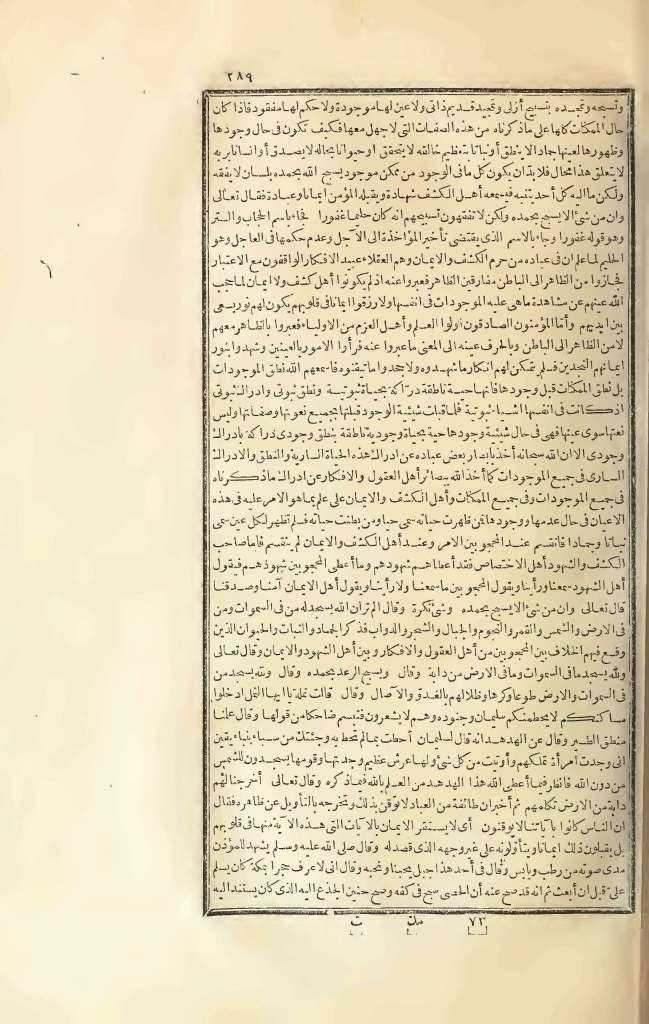 ٢٨٩
وتسبحه وتمجده بتسبيح أزلى وتمجيد قديم ذاتى ولا عين لها موجودة ولا حكم لها مفقود فاذا كان
حال الممكنات كلها على ماذكرناه من هذه الصفات التى لا جهل معها فكيف تكون فى حال وجودها
وظهورها لعينها جمادا لا ينطق أو نباتا بتعظيم خالقه لا يتحقق أو حيوانا بحاله لا يصدق أو انسانا بربه
لا يتعلق هذا محال فلا بد أن يكون كل ما فى الوجود من ممكن موجود يسبح الله بحمده بلسان لا يفقه
ولحن ما اليه كل أحد يتنبه فيسمعه أهل الكشف شهادة ويقبله المؤمن ايمانا وعبادة فقال تعالى
وان من شئ الا يسبح بحمده ولكن لا تفقهون تسبيحهم انه كان حليما غفورا فجاء باسم الحجاب والستر
وهو قوله غفورا وجاء بالاسم الذى يقتضى تأخير المؤاخذة الى الآجل وعدم حكمها فى العاجل وهو
الحليم لما علم ان فى عباده من حرم الكشف والايمان وهم العقلاء عبيد الافكار الواقفون مع الاعتبار
فجازوا من الظاهر الى الباطن مفارقين الظاهر فعبروا عنه اذ لم يكونوا أهل كشف ولا ايمان لما حجب
الله عينهم عن مشاهدة ما هى عليه الموجودات فى انفسها ولا رزقوا ايمانا فى قلوبهم يكون لهم نور يسعى
بين ايديهم وأما المؤمنون الصادقون أولوا العلم وأهل العزم من الاولياء فعبروا بالظاهر معهم
لا من الظاهر الى الباطن وبالحرف عينه الى المعنى ما عبروا عنه فرأوا الامور بالعينين وشهدوا بنور
ايمانهم النجدين فلم يتمكن لهم انكار ما شهدوه ولا جحدوا ما تيقنوه فاسمعهم الله نطق الموجودات
بل نطق الممكنات قبل وجودها فانها حية ناطقة درّاكة بحياة ثبوتية ونطق ثبوتى وادراك ثبوتى
اذ كانت فى انفسها اشياء ثبوتية فلما قبلت شيئية الوجود قبلتها بجميع نعوتها وصفاتها وليس
نعتها سوى عينها فهى فى حال شيئية وجودها حية بحياة وجودية ناطقة بنطق وجودى دراكة بادراك
وجودى الا ان الله سبحانه أخذ بابصار بعض عباده عن ادراك هذه الحياة السارية والنطق والادراك
السارى فى جميع الموجودات كما أخذ الله ببصائر أهل العقول والافكار عن ادراك ماذكرناه
فى جميع الموجودات وفى جميع الممكنات وأهل الكشف والايمان على علم بما هو الامر عليه فى هذه
الاعيان فى حال عدمها ووجودها فمن ظهرت حياته سمى حيا ومن بطنت حياته فلم تظهر لكل عين سمى
نباتا وجمادا فانقسم عند المحجوبين الامر وعند أهل الكشف والايمان لم ينقسم فاما صاحب
الكشف والشهود أهل الاختصاص فقد أعطاهم شهودهم وما أعطى المحجوبين شهودهم فيقول
أهل الشهود سمعنا ورأينا ويقول المحجوبين ما سمعنا ولا رأينا ويقول أهل الايمان آمنا وصدقنا
قال تعالى وان من شئ الا يسبح بحمده وشئ نكرة وقال ألم تر ان الله يسجد له من فى السموات ومن
فى الارض والشمس والقمر والنجوم والجبال والشجر والدواب فذكر الجماد والنبات والحيوان الذين
وقع فيهم الخلاف بين المحجوبين من أهل العقول والافكار وبين أهل الشهود والايمان وقال تعالى
ولله يسجد ما فى السموات وما فى الارض من دابة وقال ويسبح الرعد بحمده وقال ولله يسجد من
فى السموات والارض طوعا وكرها وظلالهم بالغدو والآصال وقال قالت نملة يا أيها النمل ادخلوا
مساكنكم لا يحطمنكم سليمان وجنوده وهم لا يشعرون فتبسم ضاحكا من قولها وقال علمنا
منطق الطير وقال عن الهدهد انه قال لسليمان أحطت بما لم تحط به وجئتك من سباء بنباء يقين
انى وجدت امرأة تملكهم وأوتيت من كل شئ ولها عرش عظيم وجدتها وقومها يسجدون للشمس
من دون الله فانظر فيما أعطى الله هذا الهدهد من العلم بالله فيما ذكره وقال تعالى أخرجنا لهم
دابة من الارض تكلمهم ثم أخبر ان طائفة من العباد لا توقن بذلك وتخرجه بالتأويل عن ظاهره فقال
ان الناس كانوا بآياتنا لا يوقنون أى لا يستقر الايمان بالآيات التى هذه الآية منها فى قلوبهم
بل يقبلون ذلك ايمانا ويتأولونه على غير وجهه الذى قصد له وقال صلى الله عليه وسلم يشهد للمؤذن
مدى صوته من رطب ويابس وقال فى أحد هذا جبل يحبنا ونحبه وقال انى لاعرف حجرا بمكة كان يسلم
علىّ قبل ان أبعث ثم انه قد صح عنه أن الحصى سبح فى كفه وصح حنين الجذع اليه الذى كان يستند اليه
٧٣ مك ت